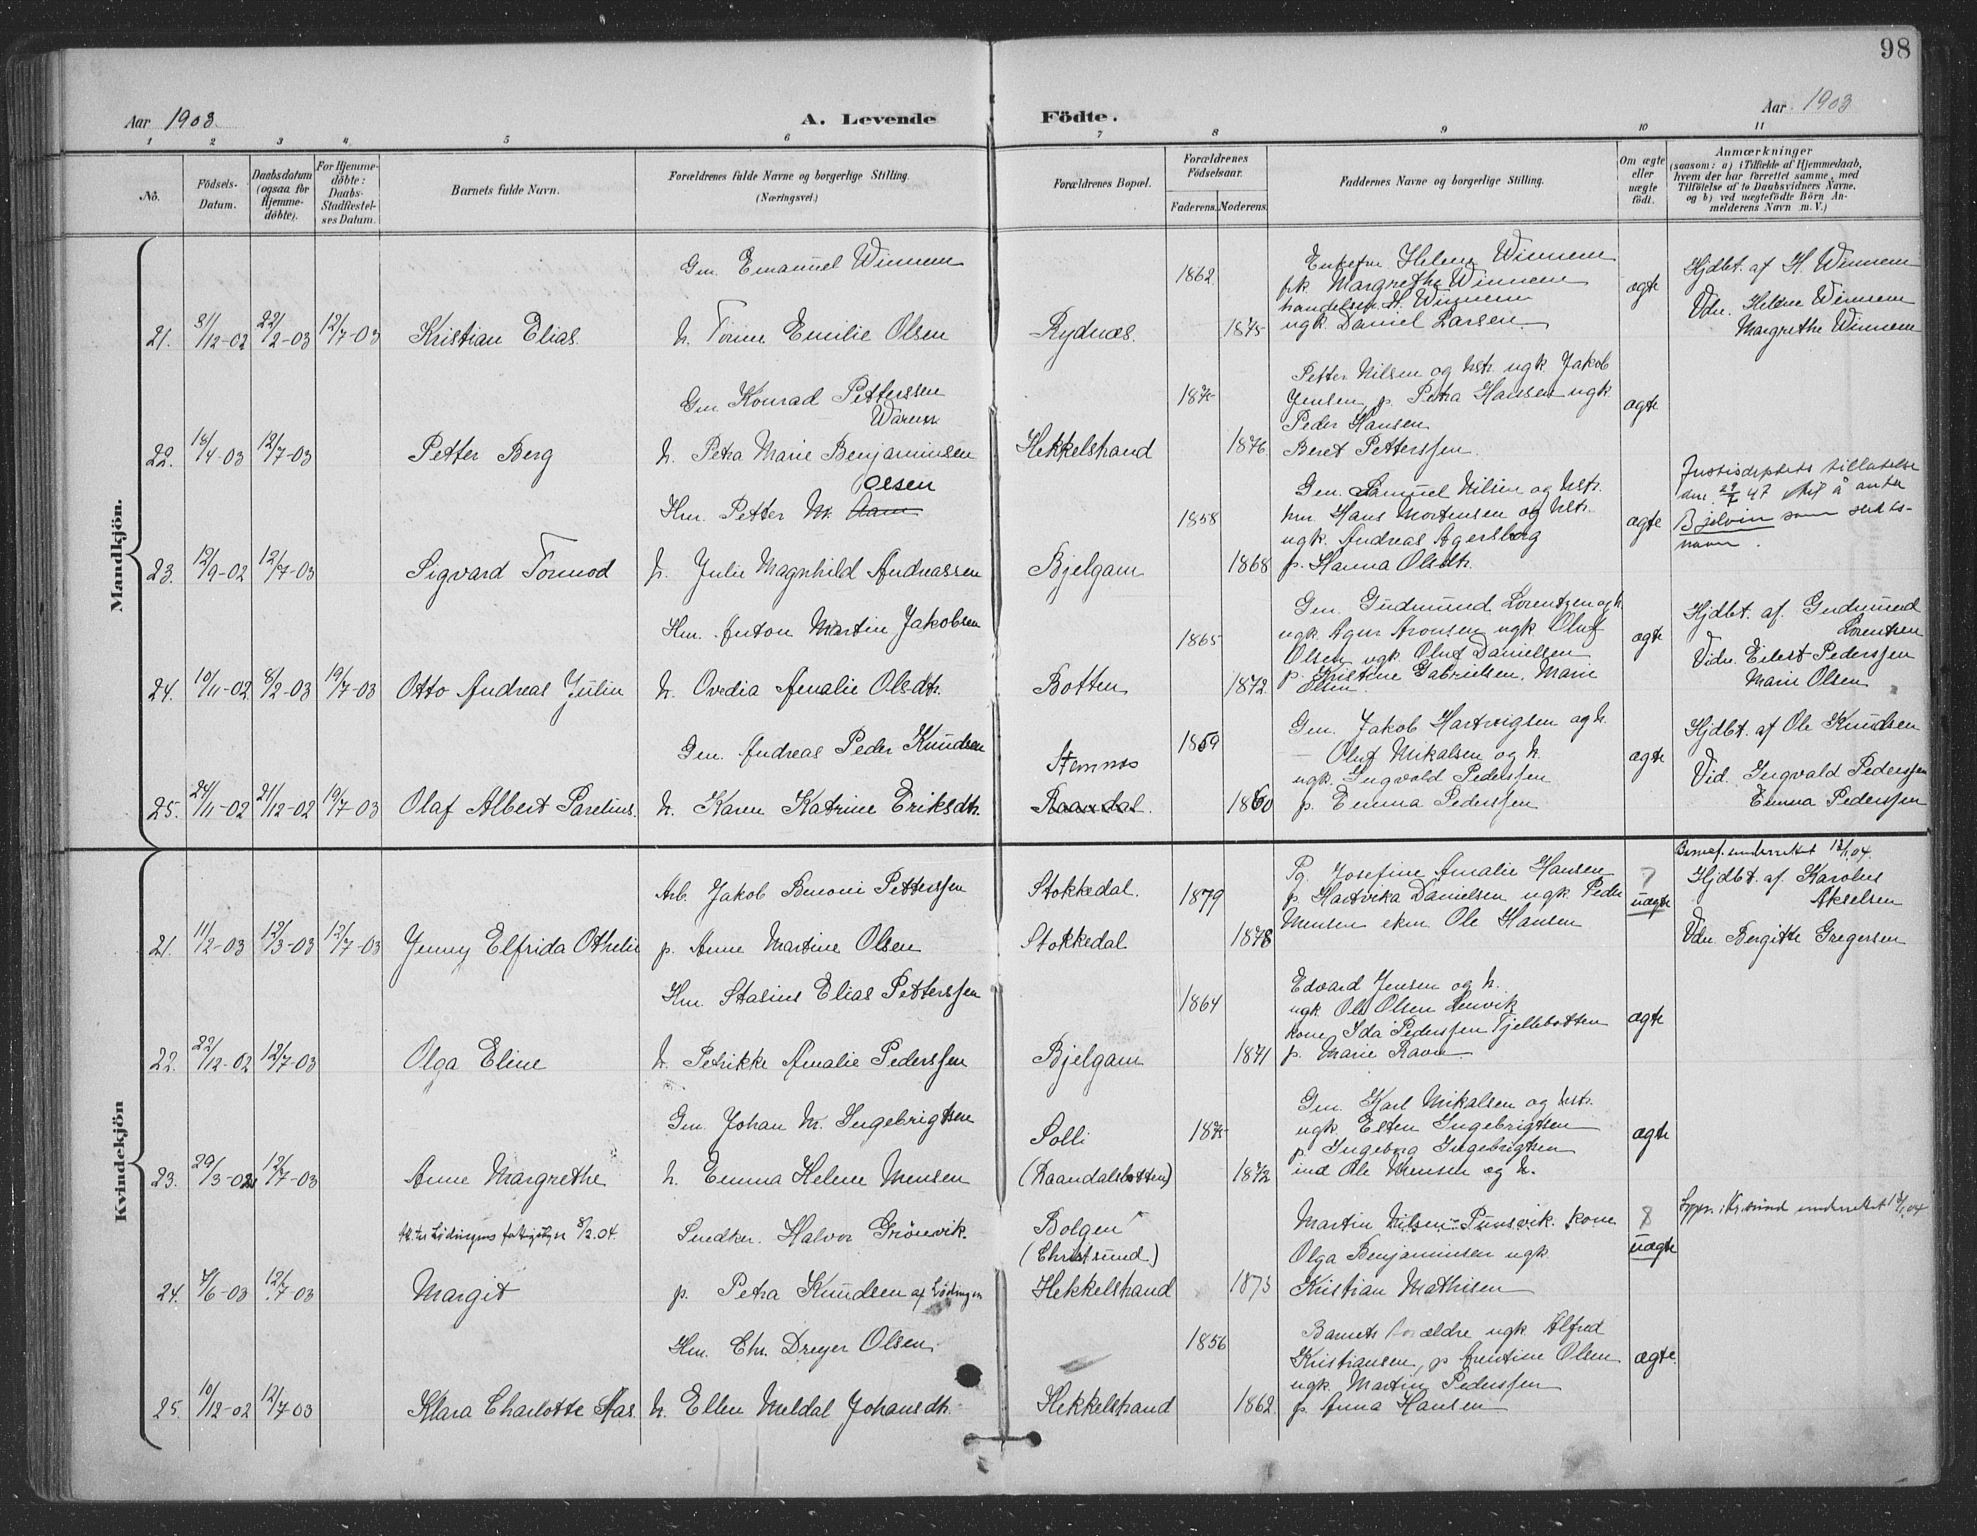 98
Aar 1903.
A. Levende
Födte.
Aar 1903
1 2 3 4 5 6 7 8 9 10 11
No.
Födsels-Datum.
Daabsdatum (ogsaa for Hjemme-döbte).
For Hjemme-döbte: Daabs-Stadfæstel-ses Datum.
Barnets fulde Navn.
Forældrenes fulde Navne og borgerlige Stilling. (Næringsvei.)
Forældrenes Bopæl.
Forældrenes Födselsaar.
Faderens. Moderens.
Faddernes Navne og borgerlige Stilling.
Om ægte eller uægte födt.
Anmærkninger
(saasom: a) i Tilfælde af Hjemmedaab, hvem der har forrettet samme, med Tilföielse af to Daabsvidners Navne, og b) ved uægtefödte Börn An-melderens Navn m. V.)
Mandkjön.
21. 31/12-02 22/2-03 12/7-03 Kristian Elias.
Gm. Emanuel Winnem
h. Emilie Olsen
Rydnæs.
1862
1875
Enkefru Helene Winnem
frk Margrethe Winnem
handelsm H. Winnem
ugk. Daniel Larsen
ægte
Hjdbt. af H. Winnem
Vidn. Helene Winnem
Margrethe Winnem
22. 18/4-03 12/7-03 Petter Berg
Gm Konrad Petterssen
h. Petra Marie Benjaminsen
Hekkelstrand
1876
Petter Nilsen og hstr. ugk Jakob
Jensen, p. Petra Hansen ugk
Peder Hansen
Beret Petterssen.
ægte
23. 12/9-02 12/7-03 Sigvard Tormod
Olsen
Hm. Petter M.
h. Julie Magnhild Andreassen
Bjelgam
1858
1868
Gm. Samuel Nilsen og hstr.
hm. Hans Mortensen og hstr.
ugk. Andreas Agersborg
p. Hanna Olsdtr.
ægte
Justisdeptets tillatelse
47 til å anta
Bjelvin som slekts-
navn.
24. 10/11-02 8/2-03 19/7-03 Otto Andreas Julin
Hm. Anton Martin Jakobsen
h. Ovedia Amalie Olsdtr.
Botten
1865
1872
Gm. Gudmund Lorentzen og h.
ugk. Agur Aronsen ugk. Oluf
Olsen ugk Oluf Danielsen
p. Kristine Gabrielsen, Marie
Olsen.
ægte
Hjdbt. af. Gudmund
Lorentsen
Vidn. Eilert Pederssen
Marie Olsen
25. 24/11-02 21/12-02 19/7-03 Olaf Albert Parelius.
Gm. Andreas Peder Knudsen
h. Karen Katrine Eriksdtr.
Stemnes
Raandal.
1859
1860
Gm. Jakob Hartvigsen og h.
— Oluf Mikalsen og h.
ugk. Ingvald Pederssen
p. Emma Pederssen
ægte
Hjdbt. af Ole Knudsen
Vid. Ingvald Pederssen
Emma Pederssen
Kvindekjön
21. 11/2-03 12/3-03 12/7-03 Jenny Elfrida Othelie
Arb. Jakob Benoni Petterssen
p. Anne Martine Olsen
Stokkedal.
Stokkedal
1879
1878
Pg. Josefine Amalie Hansen
p. Hartvika Danielsen ugk. Peder
Mensen ekm Ole Hansen
7
uægte
underrettet 13/1 04.
Hjdbt. af Karolus
Akselsen
Vidn. Bergitte Gregersen
22. 22/12-02 12/7-03 Olga Eline
Hm. Stasius Elias Petterssen
h. Petrikke Amalie Pederssen
Bjelgam
1864
1871
Edvard Jensen og h.
ugk. Ole Olsen Lenvik
kone Ida Pederssen Tjellebotten
p. Marie Ravn
ægte
23. 29/3-02 12/7-03 Anne Margrethe
Gm. Johan M. Ingebrigtsen
h. Emma Helene Mensen
Solli
(Raandalsbotten)
1875
1872
Gm. Karl Mikalsen og hstr.
ugk. Elten Ingebrigtsen
p. Ingeborg Ingebrigtsen
ind Ole Mensen og h.
ægte
Lödingens 8/2.04.
24. 4/6-03 12/7-03 Margit
Sendker. Halvor Grönvik.
p. Petra Knudsen af Lödingen
Bolgen
(Christsund.)
Hekkelstrand
1873
Martin Nilsen Punsvik. kone
Olga Benjaminsen ugk.
Kristian Mathisen
8
uægte
underrettet 13/1 04
25. 10/12-02 12/7-03 Klara Charlotte Aas.
Hm. Chr. Dreyer Olsen.
h. Ellen Meldal Johansdtr.
Hekkelstrand
1856
1862
Barnets forældre ugk Alfred
Kristiansen, p Arentine Olsen
ugk. Martin Pederssen
p. Anna Hansen
ægte.